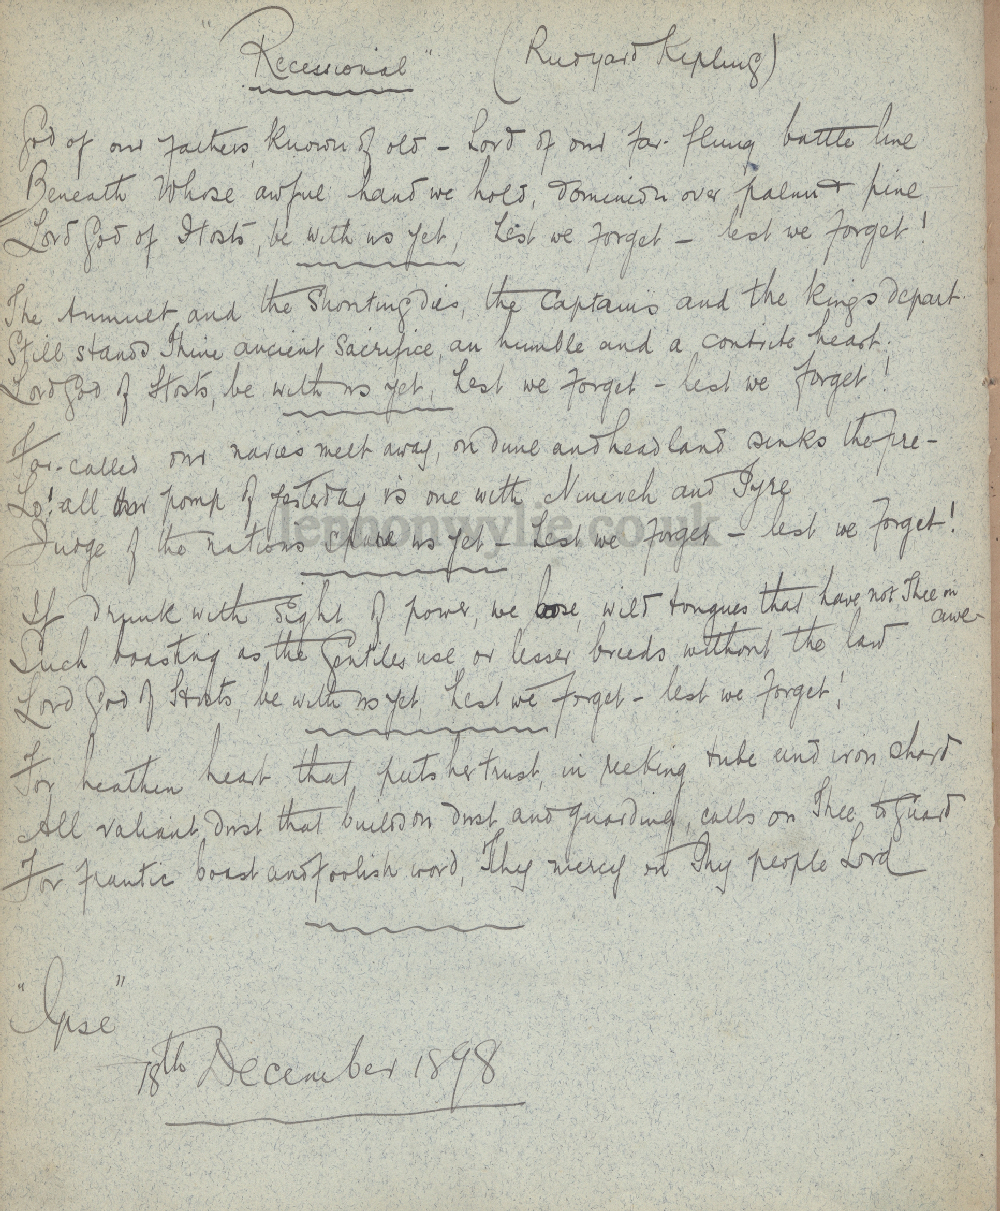 "Recessional" (Rudyard Kipling)
God of our fathers, known of old – Lord of our far-flung battle line
Beneath Whose awful hand we hold, dominion over palm & pine
Lord God of Hosts, be with us yet, Lest we forget – lest we forget!
The tumult and the Shouting dies, the Captains and the kings depart.
Still stands Thine ancient Sacrifice, an humble and a contrite heart.
Lord God of Hosts, be with us yet, Lest we forget – lest we forget!
Far-called our navies melt away, on dune and headland sinks the fire –
Lo! all our pomp of yesterday is one with Nineveh and Tyre
lennonwylie.co.uk
Judge of the nations spare us yet – Lest we forget – lest we forget!
If drunk with sight of power, we loose, wild tongues that have not Thee in
awe
Such boasting as the Gentiles use or lesser breeds without the law
Lord God of Hosts, be with us yet Lest we forget – lest we forget!
For heathen heart that puts her trust, in reeking tube and iron shard
All valiant dust that builds on dust and guarding, calls on Thee to guard
For frantic boast and foolish word, Thy mercy on Thy people Lord
"Ipse"
18th December 1898